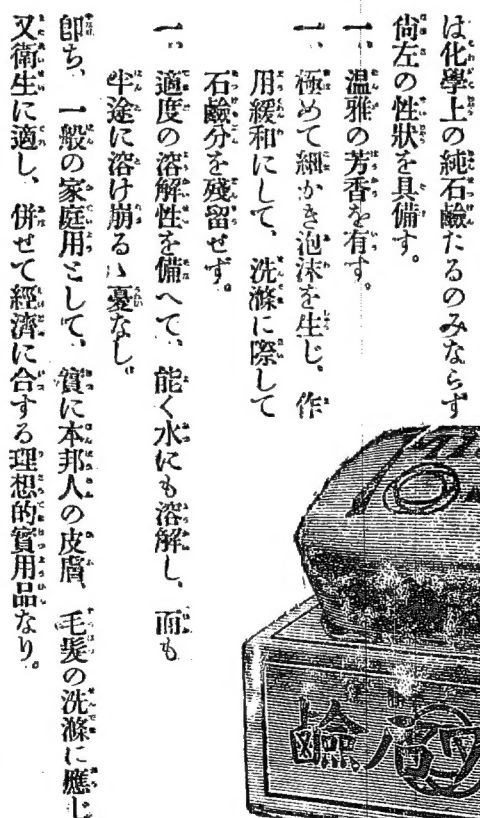 は化學上の純石鹼たるのみならず
尙左の性狀を具備す。
一、溫雅の芳香を有す。
一、極めて細かき泡沫を生じ、作
用緩和にして、洗滌に際して
石鹼分を殘留せず。
一、適度の溶解性を備へて、能く水にも溶解し、而も
半途に溶け崩るゝ憂なし。
卽ち、一般の家庭用として、實に本邦人の皮膚、毛髮の洗滌に應じ
又衞生に適し、併せて經濟に合する理想的實用品なり。
石鹼